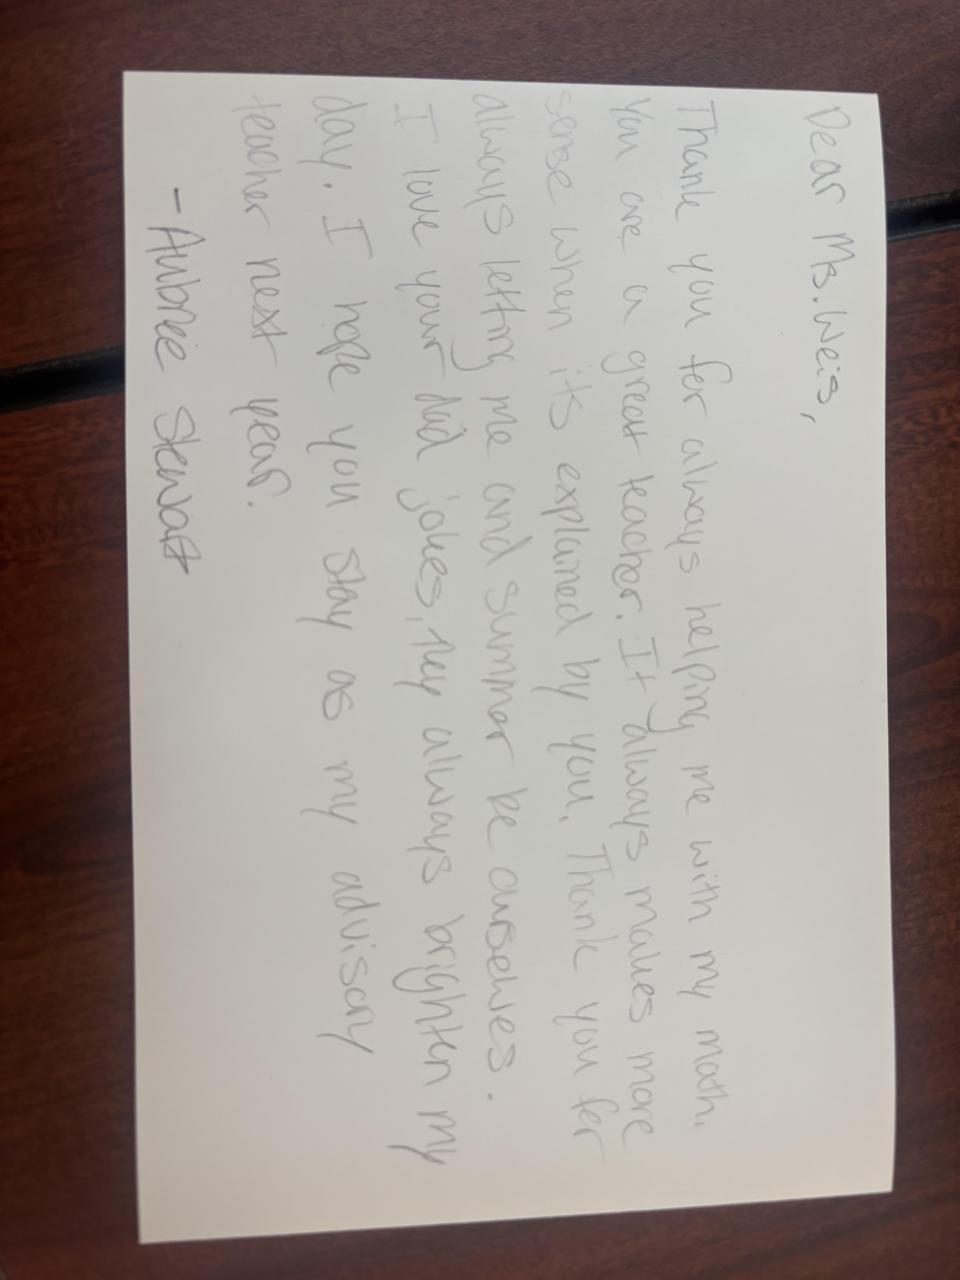 Dear Ms. Weis,
Thank you for always helping me with my math.
You are a great teacher. It always makes more
sense when its explained by you. Thank you for
always letting me and summer be ourselves.
I love your dad jokes, they always brighten my
day. I hope you stay as my advisory
teacher next year.
- Aubree Stewart